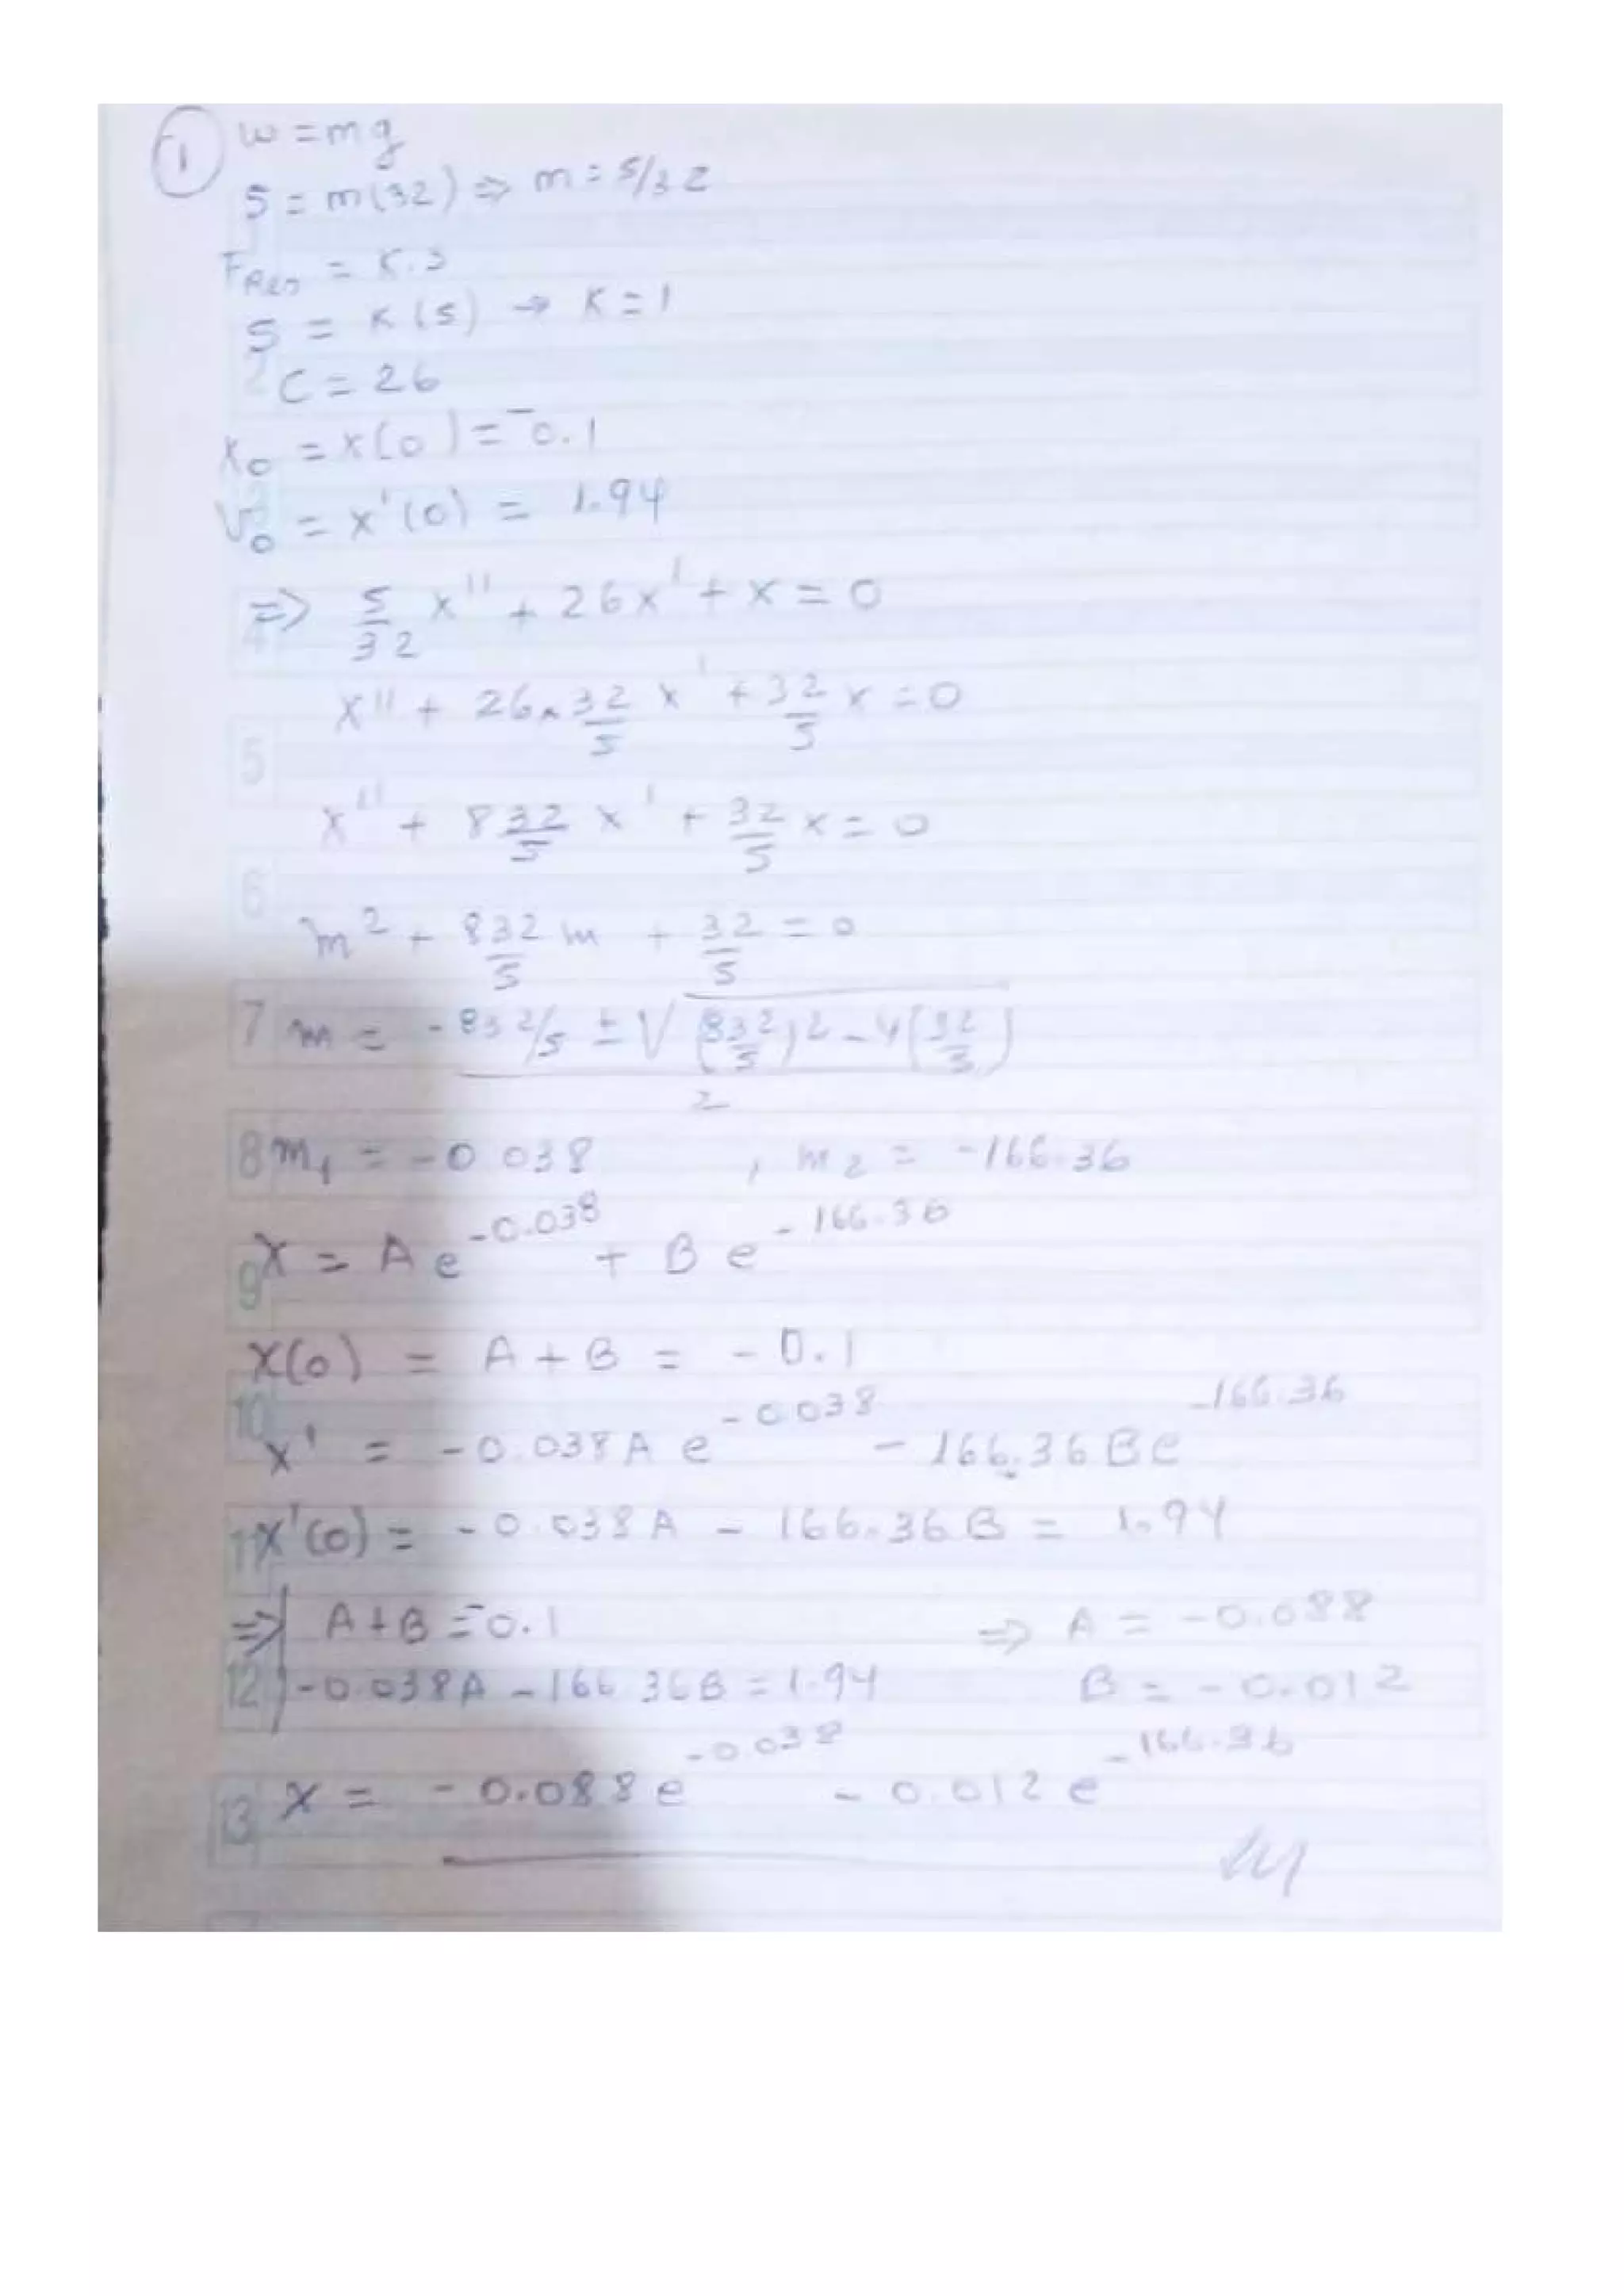 1 w = mg
5 = m(32) => m = 5/32
F Res = K.s
5 = K(5) → K = 1
C = 26
x0 = x(0) = -0.1
V0 = x'(0) = 1.94
=> 5/32 x'' + 26x' + x = 0
x'' + 26 x 32/5 x' + 32/5 x = 0
x'' + 832/5 x' + 32/5 x = 0
m^2 + 832/5 m + 32/5 = 0
m = (-832/5 ± √((832/5)^2 - 4(32/5)))/2
m1 = -0.038 , m2 = -166.36
x = A e^-0.038 + B e^-166.36
x(0) = A + B = -0.1
x' = -0.038 A e^-0.038 - 166.36 B e^-166.36
x'(0) = -0.038 A - 166.36 B = 1.94
=> A + B = -0.1 => A = -0.088
-0.038A - 166.36B = 1.94 B = -0.012
x = -0.088 e^-0.038 - 0.012 e^-166.36